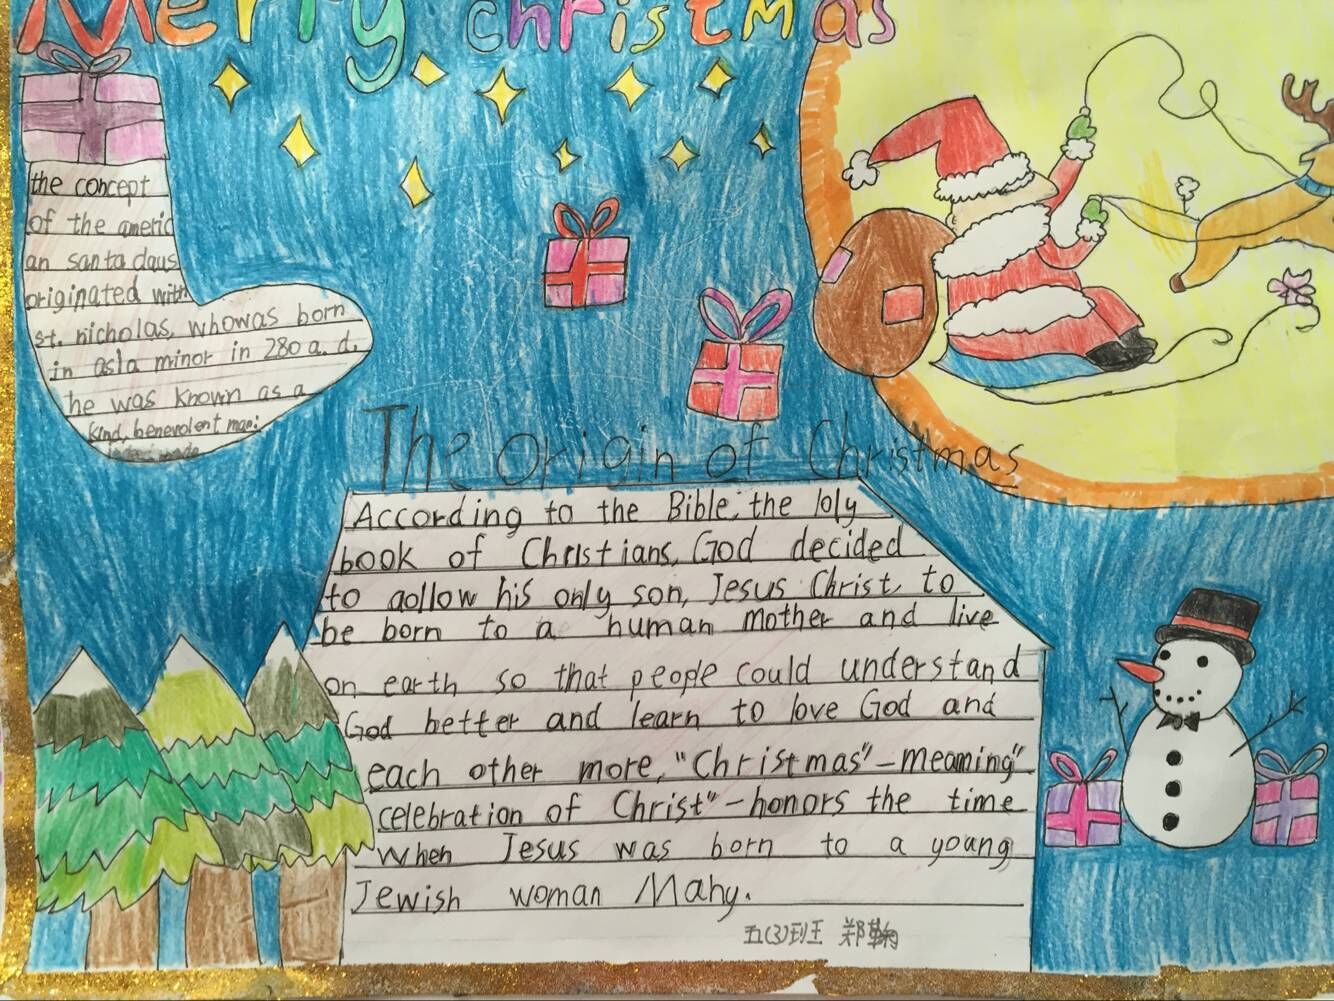 Merry christmas
the concept
of the americ
an santa daus
originated with
st. nicholas, whowas born
in asla minor in 280 a. d.
he was known as a
kind, benevolent man:
The origin of Christmas
According to the Bible, the loly
book of Christians, God decided
to aollow his only son, Jesus Christ, to
be born to a human mother and live
on earth so that people could understand
God better and learn to love God and
each other more, "Christmas"-meaming"
celebration of Christ"-honors the time
when Jesus was born to a young
Jewish woman Mahy.
五(3)班 郑